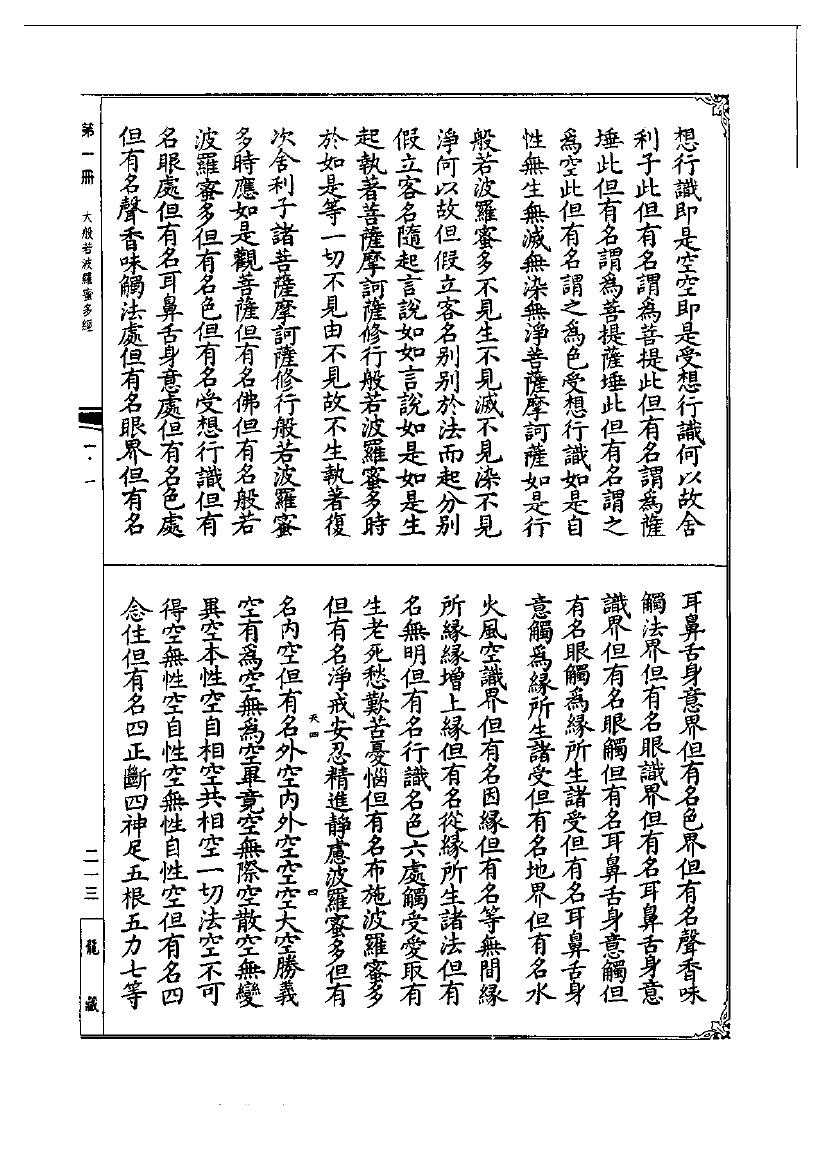 想行識即是空空即是受想行識何以故舍
利子此但有名謂為菩提此但有名謂為薩
埵此但有名謂為菩提薩埵此但有名謂之
為空此但有名謂之為色受想行識如是自
性無生無滅無染無淨菩薩摩訶薩如是行
般若波羅蜜多不見生不見滅不見染不見
淨何以故但假立客名别别於法而起分别
假立客名隨起言說如如言說如是如是生
起執著菩薩摩訶薩修行般若波羅蜜多時
於如是等一切不見由不見故不生執著復
次舍利子諸菩薩摩訶薩修行般若波羅蜜
多時應如是觀菩薩但有名佛但有名般若
波羅蜜多但有名色但有名受想行識但有
名眼處但有名耳鼻舌身意處但有名色處
但有名聲香味觸法處但有名眼界但有名
耳鼻舌身意界但有名色界但有名聲香味
觸法界但有名眼識界但有名耳鼻舌身意
識界但有名眼觸但有名耳鼻舌身意觸但
有名眼觸為緣所生諸受但有名耳鼻舌身
意觸為緣所生諸受但有名地界但有名水
火風空識界但有名因緣但有名等無間緣
所緣緣增上緣但有名從緣所生諸法但有
名無明但有名行識名色六處觸受愛取有
生老死愁歎苦憂惱但有名布施波羅蜜多
但有名淨戒安忍精進靜慮波羅蜜多但有
天四 四
名內空但有名外空內外空空空大空勝義
空有為空無為空畢竟空無際空散空無變
異空本性空自相空共相空一切法空不可
得空無性空自性空無性自性空但有名四
念住但有名四正斷四神足五根五力七等
第一冊 大般若波羅蜜多經
一·一
二一三
龍藏